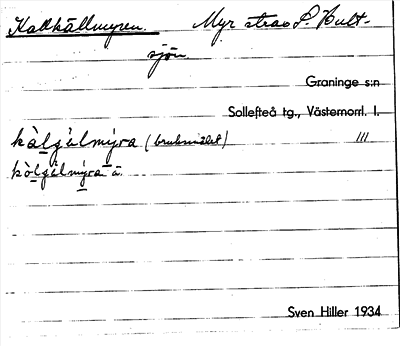 Kallkällmyren. Myr strax S. Hult-
sjön.
Graninge s:n
Sollefteå tg., Västernorrl. l.
kàlgä̀lmýra (bruksmålet) III
kòlgä̀lmýra
Sven Hiller 1934